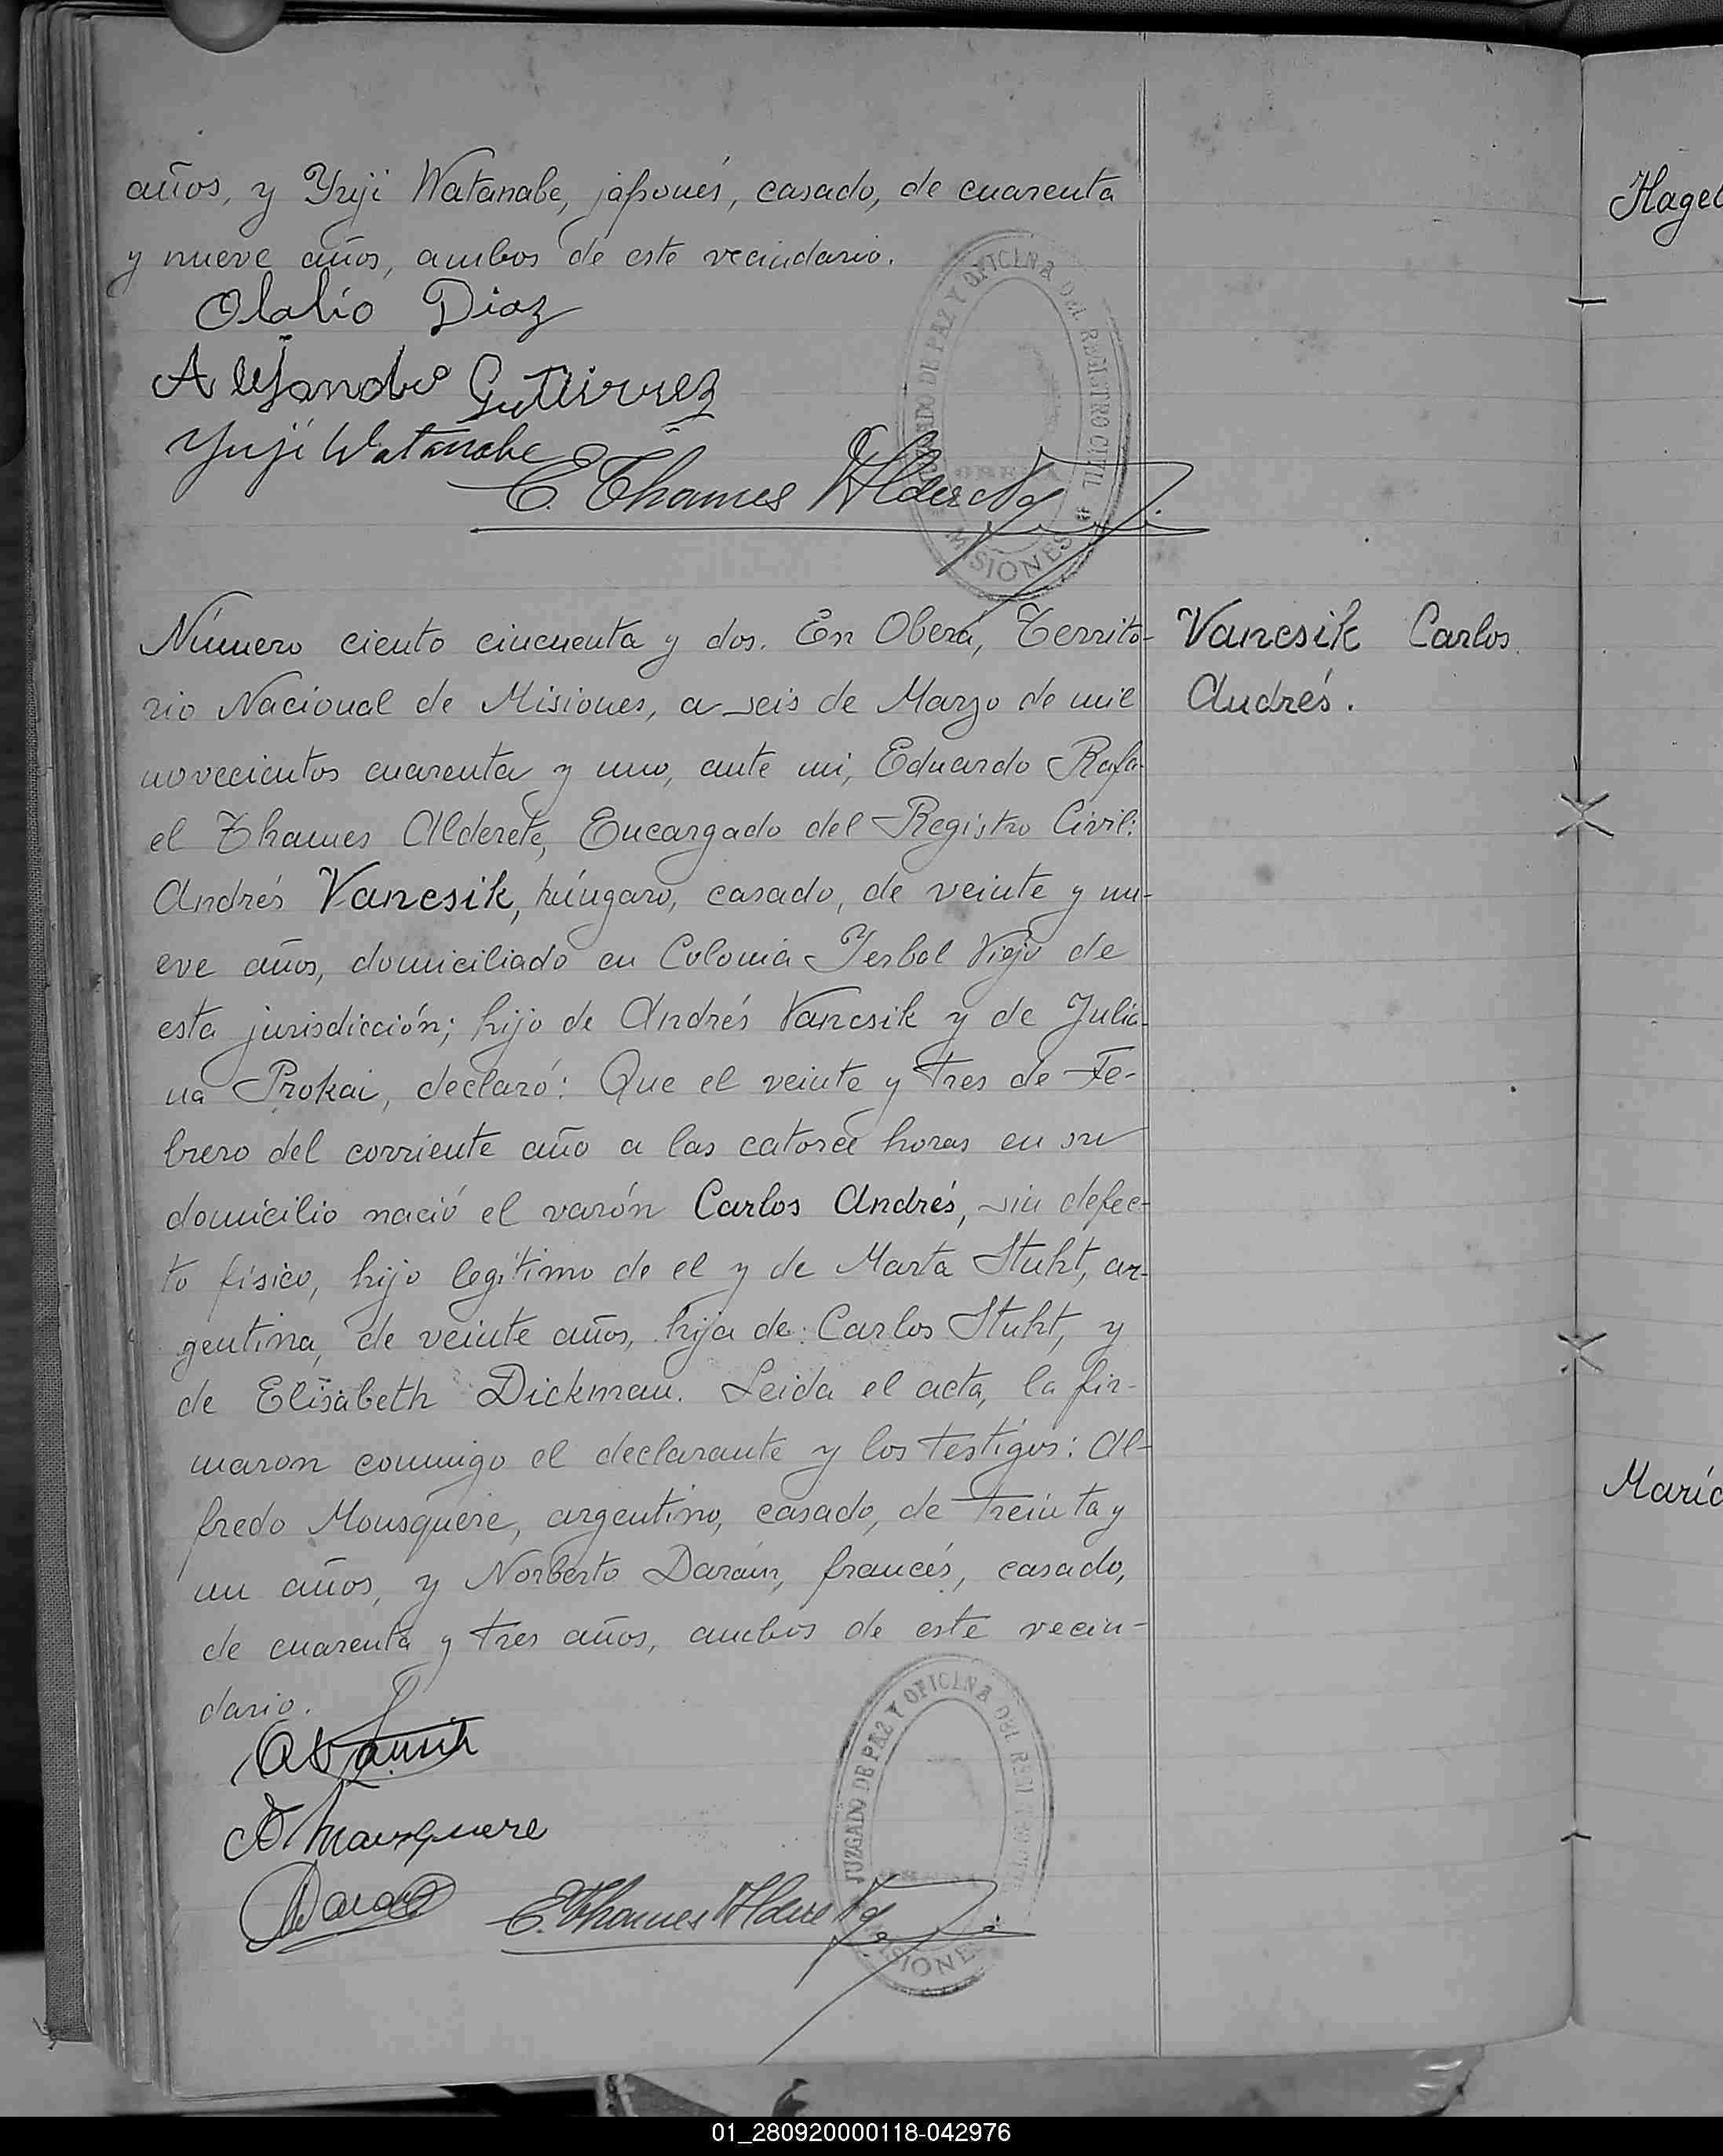 años, y Yuji Watanabe, japonés, casado, de cuarenta
y nueve años, ambos de este vecindario.
Olalio Diaz
Alejandro Gutierrez
Yuji Watanabe
E. Thames Alderete
JUZGADO DE PAZ Y OFICINA DEL REGISTRO CIVIL
OBERA
MISIONES
Número ciento cincuenta y dos. En Oberá, Territo-
rio Nacional de Misiones, a seis de Marzo de mil
novecientos cuarenta y uno, ante mi, Eduardo Rafa-
el Thames Alderete, Encargado del Registro Civil:
Andrés Vancsik, húngaro, casado, de veinte y nu-
eve años, domiciliado en Colonia Yerbal Viejo de
esta jurisdicción; hijo de Andrés Vancsik y de Julia-
na Prokai, declaró: Que el veinte y tres de Fe-
brero del corriente año a las catorce horas en su
domicilio nació el varón Carlos Andrés, sin defec-
to físico, hijo legítimo de el y de Marta Stuht, ar-
gentina, de veinte años, hija de Carlos Stuht, y
de Elisabeth Dickman. Leida el acta, la fir-
maron conmigo el declarante y los testigos: Al-
fredo Mousquere, argentino, casado, de treinta y
un años, y Norberto Daraún, francés, casado,
de cuarenta y tres años, ambos de este vecin-
dario.
A Vancsik
A Mousquere
E. Thames Alderete
JUZGADO DE PAZ Y OFICINA DEL
MISIONES
Vancsik Carlos
Andrés.
Hagel
María
01_280920000118-042976